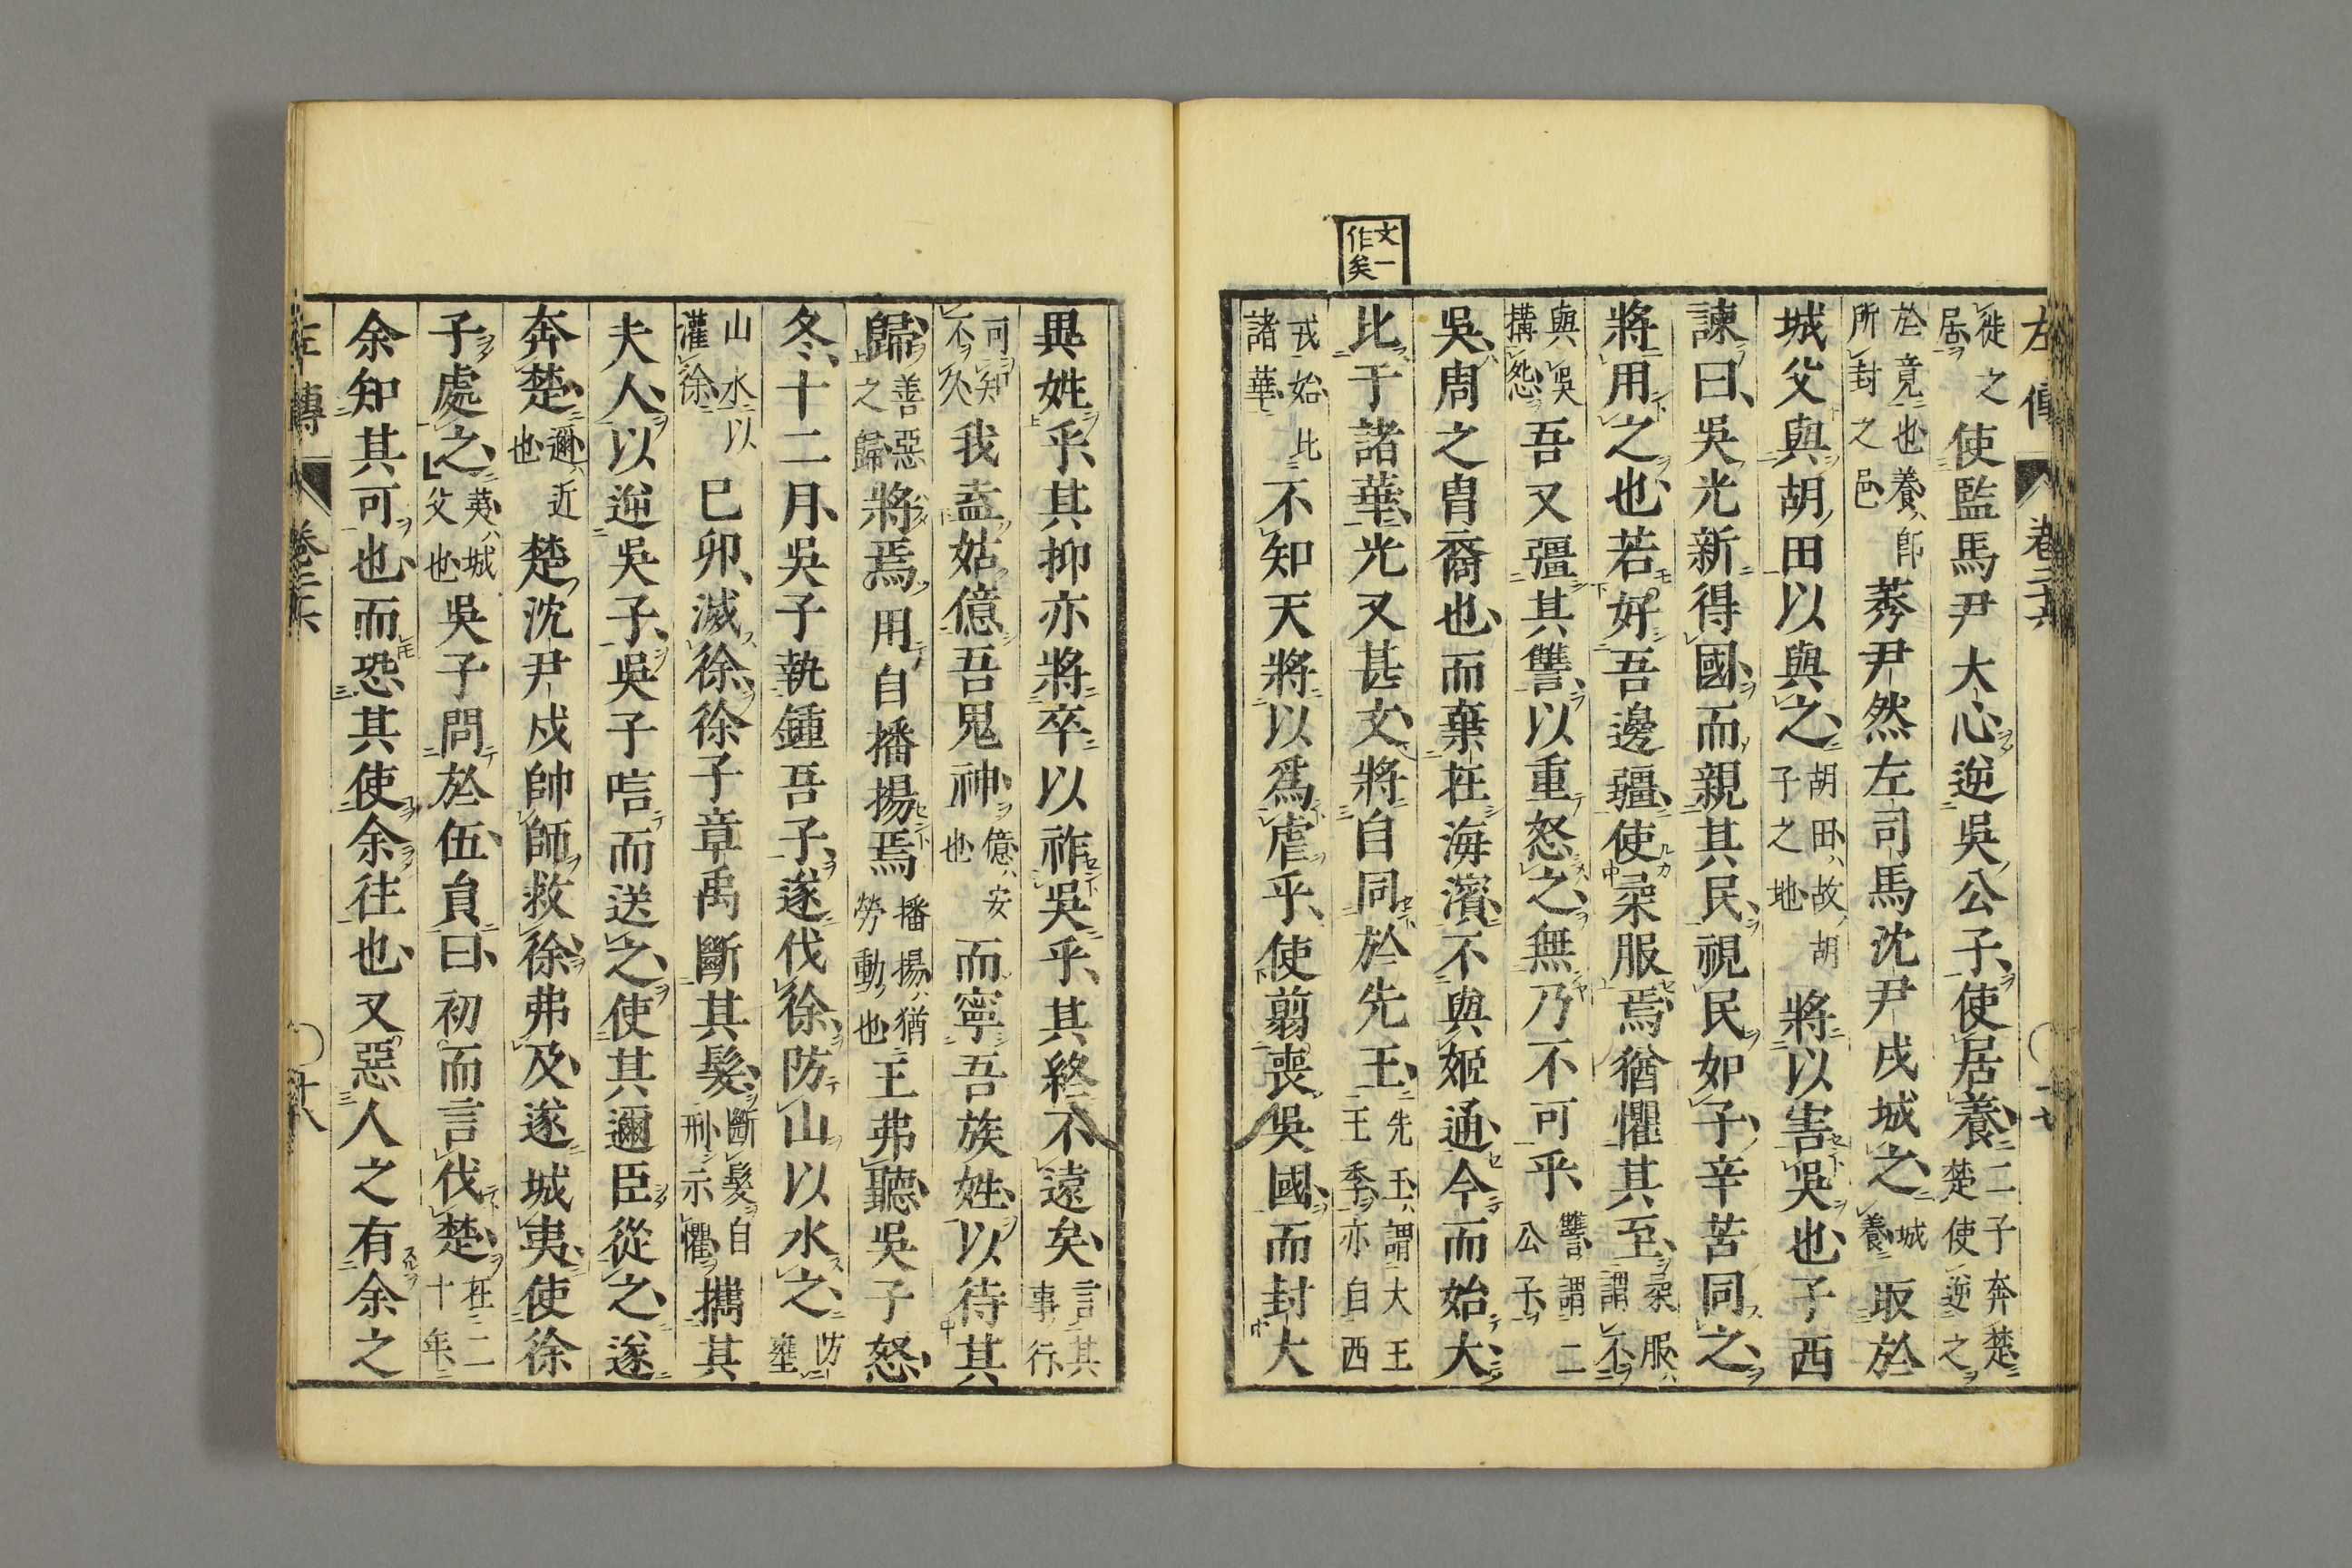 左傳 卷二十六 十七
徙之居使監馬尹大心逆吳公子、使居養、二子奔楚楚使逆之
於竟也養即所封之邑莠尹然左司馬沈尹戌城之、城養取於
城父與胡田以與之、胡田故胡子之地將以害吳也、子西
諫曰、吳光新得國、而親其民、視民如子、辛苦同之、
將用之也、若好吾邊疆、使柔服焉、猶懼其至、柔服謂不
與吳構怨吾又彊其讐、以重怒之、無乃不可乎、讐謂二公子
吳、周之冑裔也、而棄在海濱、不與姬通、今而始大、
文一作矣
比于諸華、光又甚文、將自同於先王、先王謂大王王季亦自西
戎始比諸華不知天將以爲虐乎、使翦喪吳國、而封大
異姓乎、其抑亦將卒以祚吳乎、其終不遠矣、言其事行
可知不久我盍姑億吾鬼神、億安也而寧吾族姓、以待其
歸、善惡之歸將焉用自播揚焉播揚猶勞動也王弗聽、吳子怒、
冬、十二月、吳子執鍾吾子、遂伐徐、防山以水之、防壅
山水以灌徐己卯、滅徐、徐子章禹斷其髮、斷髮自刑示懼攜其
夫人、以逆吳子、吳子唁而送之、使其邇臣從之、遂
奔楚、邇近也楚沈尹戌帥師救徐、弗及、遂城夷、使徐
子處之、夷城父也吳子問於伍員曰、初而言伐楚、在二十年
余知其可也、而恐其使余往也、又惡人之有余之
左傳 卷二十六 十八